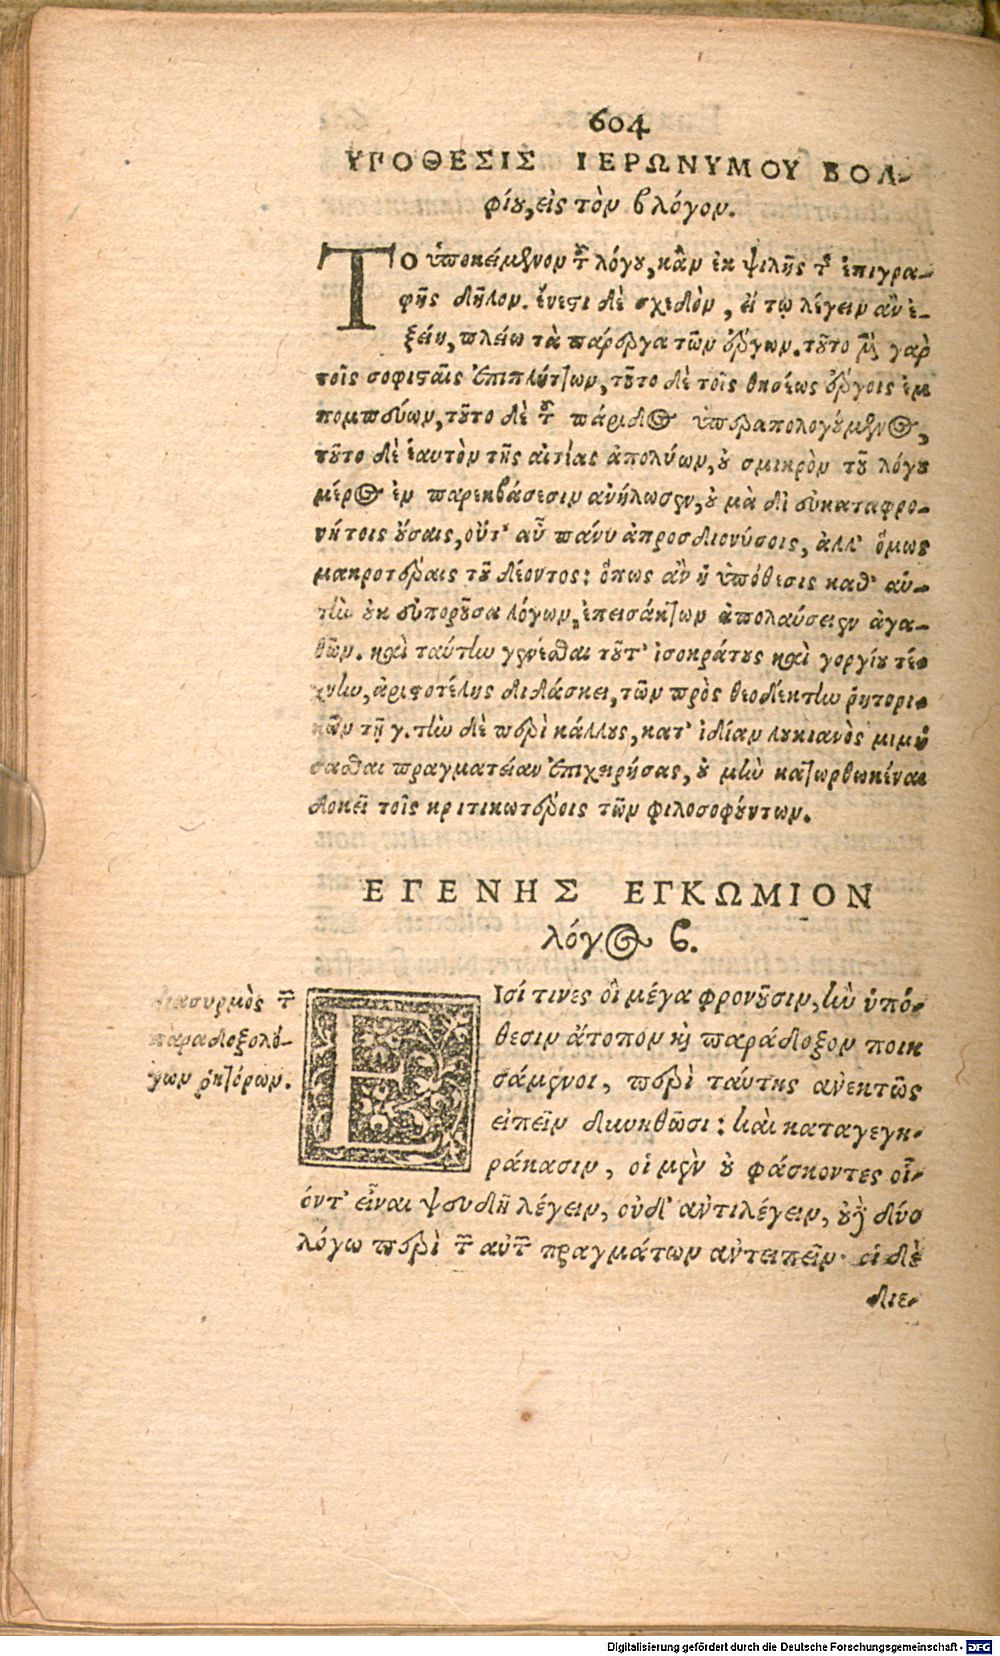 604
ΥΠΟΘΕΣΙΣ ΙΕΡΩΝΥΜΟΥ ΒΟΛ-
φίου, εἰς τὸν ϐ λόγον.
ΤΟ ὑποκείμενον τοῦ λόγου, κἂν ἐκ ψιλῆς τῆς ἐπιγρα-
φῆς δῆλον. ἔνεστι δὲ σχεδὸν, εἴ τῳ λέγειν ἂν ἐ-
ξείη, πλείω τὰ πάρεργα τῶν ἔργων. τοῦτο μὲν γὰρ
τοῖς σοφισταῖς ἐπιπλήττων, τοῦτο δὲ τοῖς θησέως ἔργοις ἐμ
πομπεύων, τοῦτο δὲ τοῦ πάριδος ὑπεραπολογούμενος,
τοῦτο δὲ ἑαυτὸν τῆς αἰτίας ἀπολύων, οὐ σμικρὸν τοῦ λόγου
μέρος ἐν παρεκβάσεσιν ἀνήλωσεν, οὐ μὰ δί εὐκαταφρο-
νήτοις οὔσαις, οὔτ' αὖ πάνυ ἀπροσδιονύσοις, ἀλλ' ὅμως
μακροτέραις τοῦ δέοντος: ὅπως ἂν ἡ ὑπόθεσις καθ' αὑ-
τὴν οὐκ εὐποροῦσα λόγων, ἐπεισάκτων ἀπολαύσειεν ἀγα-
θῶν. καὶ ταύτην γενέσθαι τοῦτ' ἰσοκράτους καὶ γοργίου τέ-
χνην, ἀριστοτέλης διδάσκει, τῶν πρὸς θεοδέκτην ῥητορι-
κῶν τῇ γ. τὴν δὲ περὶ κάλλους, κατ' ἰδίαν λουκιανὸς μιμή
σασθαι πραγματείαν ἐπιχειρήσας, οὐ μὴν κατωρθωκέναι
δοκεῖ τοῖς κριτικωτέροις τῶν φιλοσοφούντων.
ΕΓΕΝΗΣ ΕΓΚΩΜΙΟΝ
λόγος ϐ.
διασυρμὸς τῶν
παραδοξολό-
γων ῥητόρων.
ΕΙσί τινες οἳ μέγα φρονοῦσιν, ἢν ὑπό-
θεσιν ἄτοπον καὶ παράδοξον ποιη
σάμενοι, περὶ ταύτης ἀνεκτῶς
εἰπεῖν δυνηθῶσι: καὶ καταγεγη-
ράκασιν, οἱ μὲν οὐ φάσκοντες οἷ-
όντ' εἶναι ψευδῆ λέγειν, οὐδ' ἀντιλέγειν, οὐδὲ δύο
λόγω περὶ τῶν αὐτῶν πραγμάτων ἀντειπεῖν· οἱ δὲ
διε-
Digitalisierung gefördert durch die Deutsche Forschungsgemeinschaft - DFG